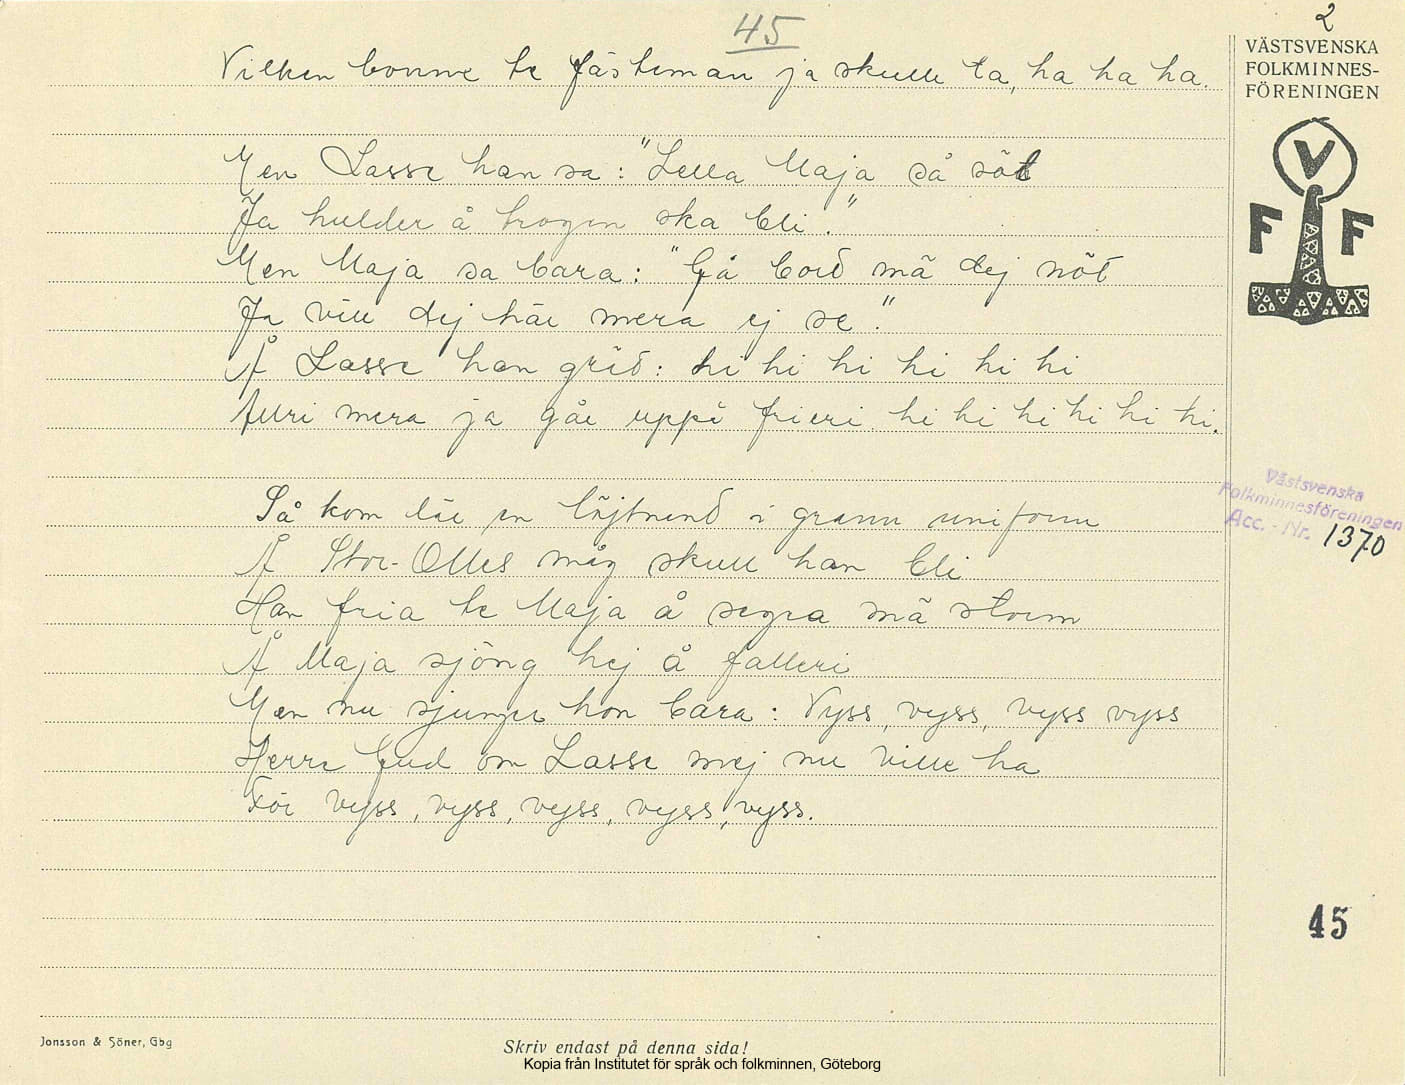 45
2
VÄSTSVENSKA
FOLKMINNES-
FÖRENINGEN
V
F F
Vilken bonne te fästeman ja skulle ta, ha ha ha.
Men Lasse han sa: "Lella Maja så söt
Ja hulder å trogen ska bli."
Men Maja sa bara: "Gå bort mä dej nöt
Ja vill dej här mera ej se."
Å Lasse han gröt: hi hi hi hi hi hi
Allri mera ja går uppå frieri hi hi hi hi hi hi.
Så kom där en löjtnant i grann uniform
Å Stor-Olles måg skull han bli
Han fria te Maja å segra mä storm
Å Maja sjöng hej å falleri
Men nu sjunger hon bara: Vyss, vyss, vyss vyss
Herre Gud om Lasse mej nu ville ha
För vyss, vyss, vyss, vyss, vyss.
Västsvenska
Folkminnesföreningen
Acc. - Nr. 1370
45
Jonsson & Söner, Gbg
Skriv endast på denna sida!
Kopia från Institutet för språk och folkminnen, Göteborg